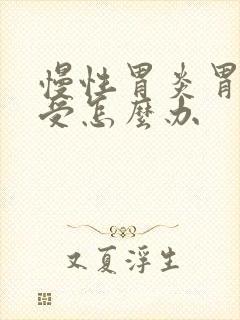 慢性胃炎胃
受怎麼办
又夏浮生